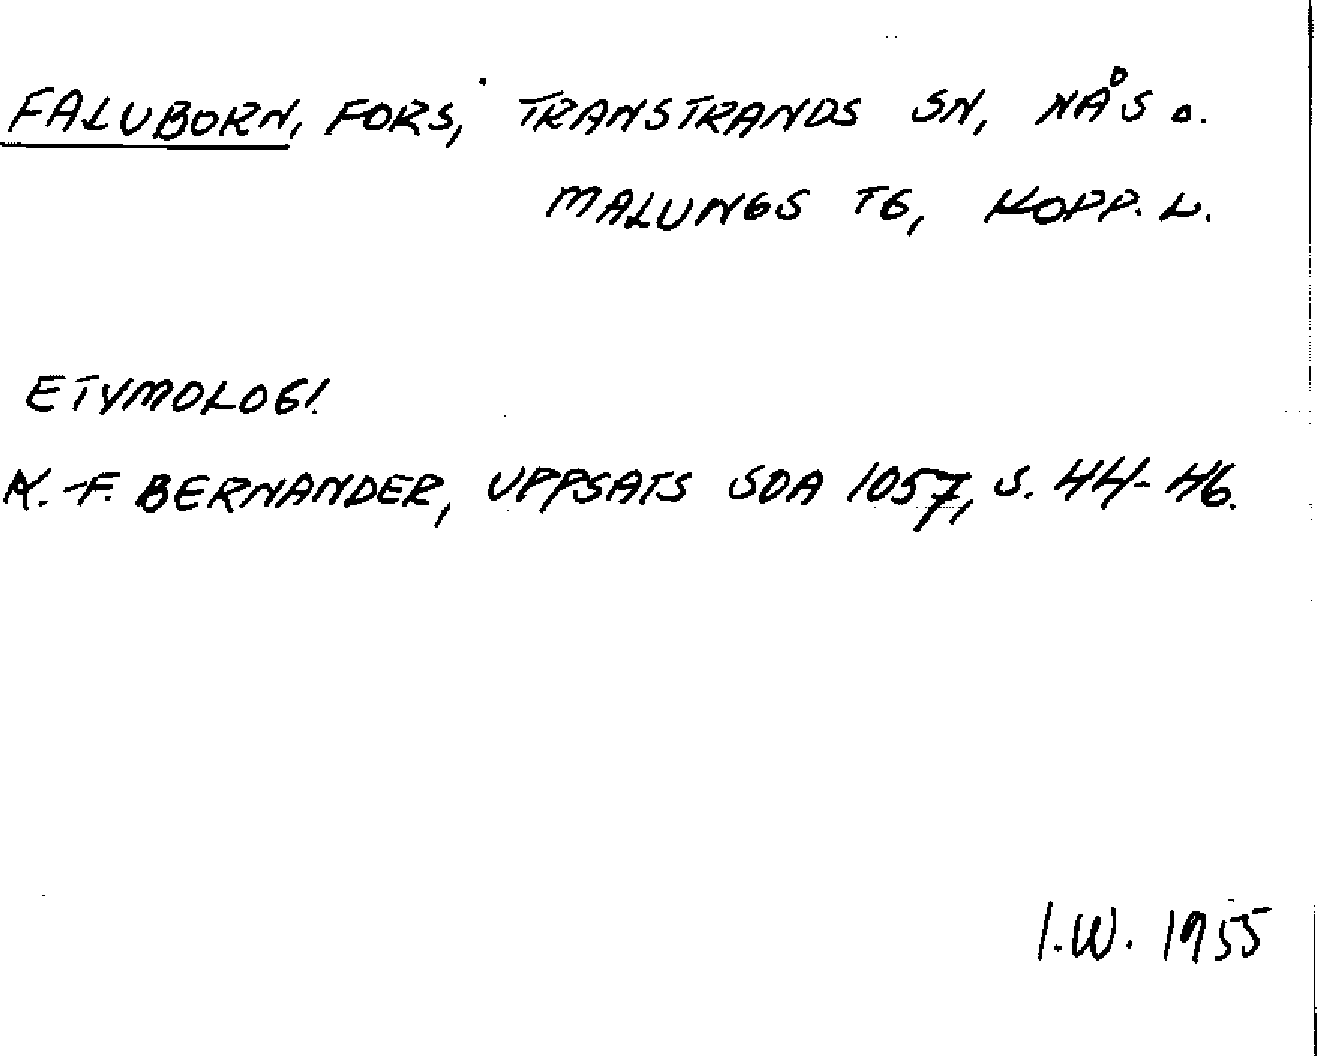 FALUBORN, FORS, TRANSTRANDS SN, NÅS O.
MALUNGS TG, KOPP. L.
ETYMOLOGI.
K.-F. BERNANDER, UPPSATS SOA 1057, S. 44-46.
I.W. 1955